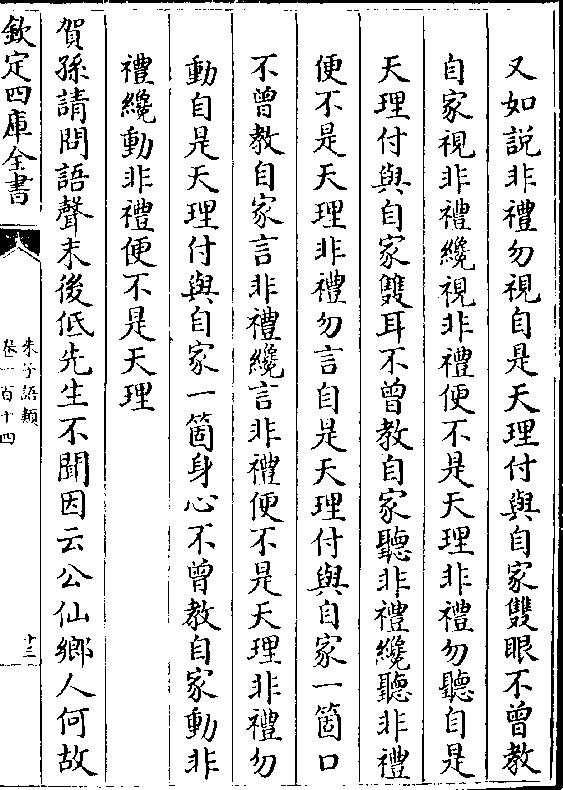 又如說非禮勿視自是天理付與自家雙眼不曾教
自家視非禮纔視非禮便不是天理非禮勿聽自是
天理付與自家雙耳不曾教自家聽非禮纔聽非禮
便不是天理非禮勿言自是天理付與自家一箇口
不曾教自家言非禮纔言非禮便不是天理非禮勿
動自是天理付與自家一箇身心不曾教自家動非
禮纔動非禮便不是天理
賀孫請問語聲末後低先生不聞因云公仙鄉人何故
欽定四庫全書
朱子語類
卷一百十四
十三